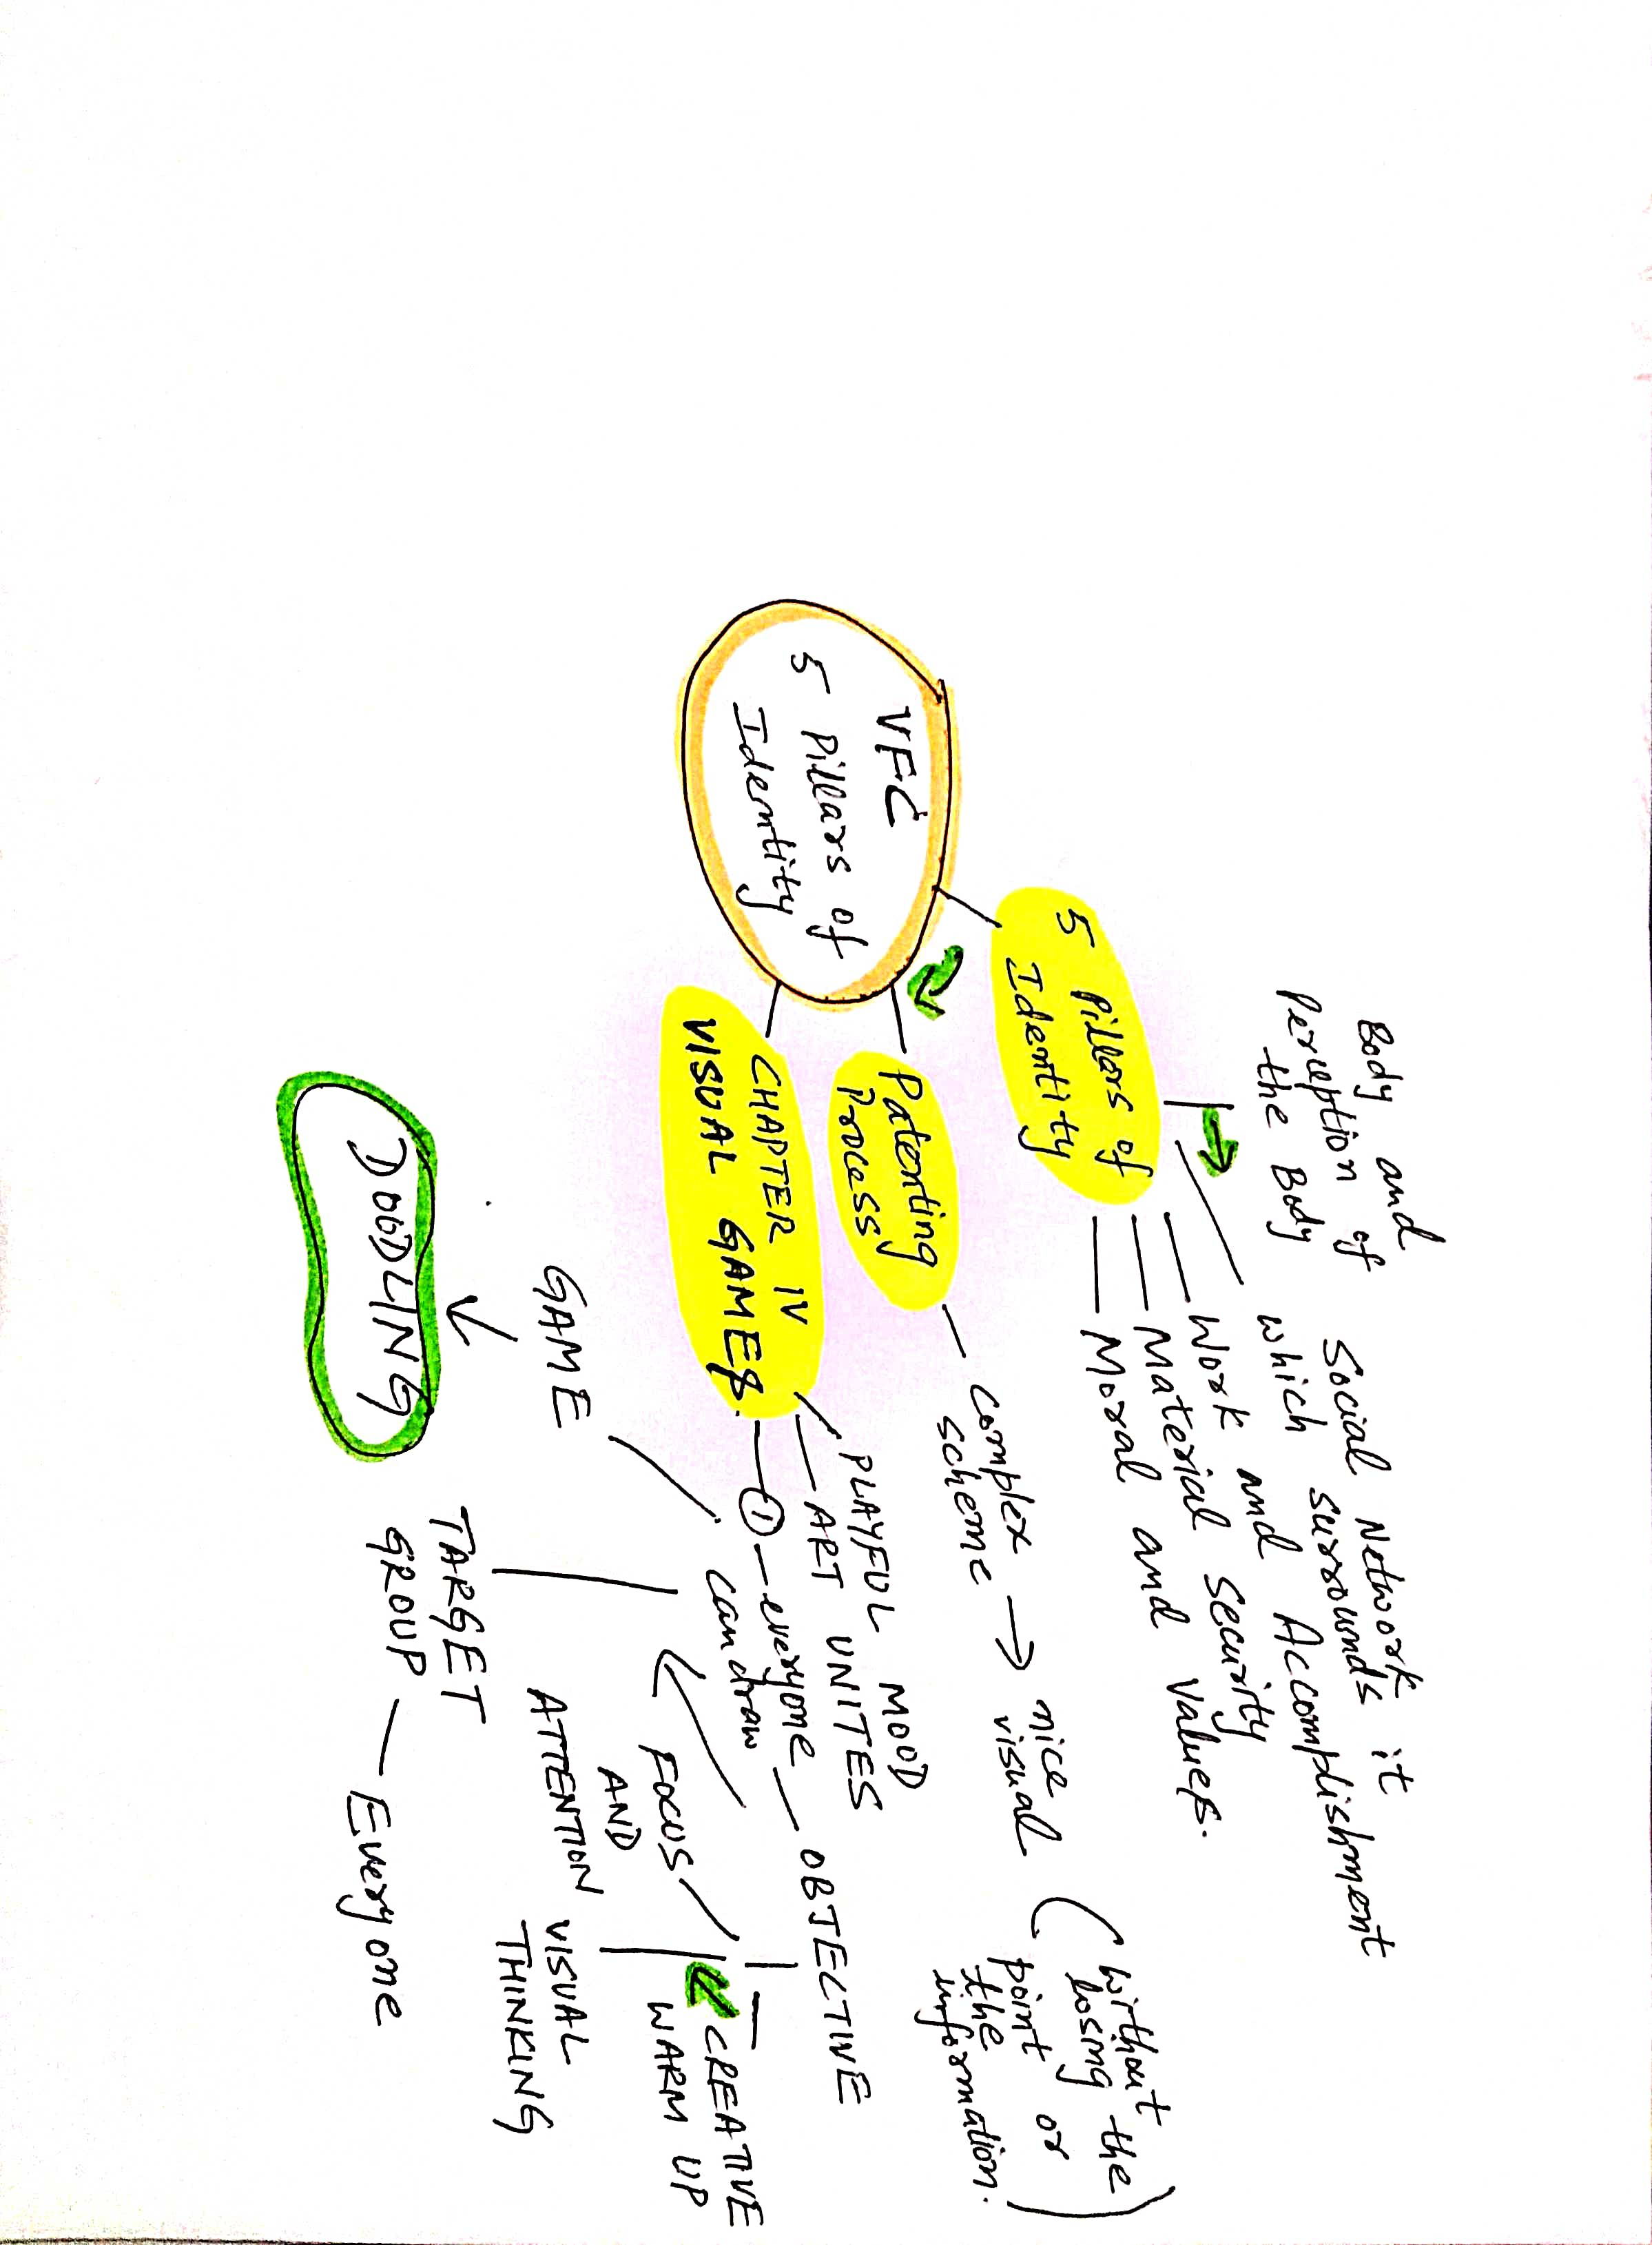 VFC
5 Pillars of
Identity
5 Pillars of
Identity
Body and
Perception of
the Body
Social Network it
which surrounds
Work and Accomplishment
Material Security
Moral and values.
Patenting
Process
complex
scheme
→ nice
visual
(without
losing the
point or
the
information.)
CHAPTER IV
VISUAL GAMES.
PLAYFUL MOOD
ART UNITES
① everyone
can draw
OBJECTIVE
CREATIVE
WARM UP
VISUAL
THINKING
FOCUS
AND
ATTENTION
TARGET
GROUP — Everyone
GAME
DOODLING